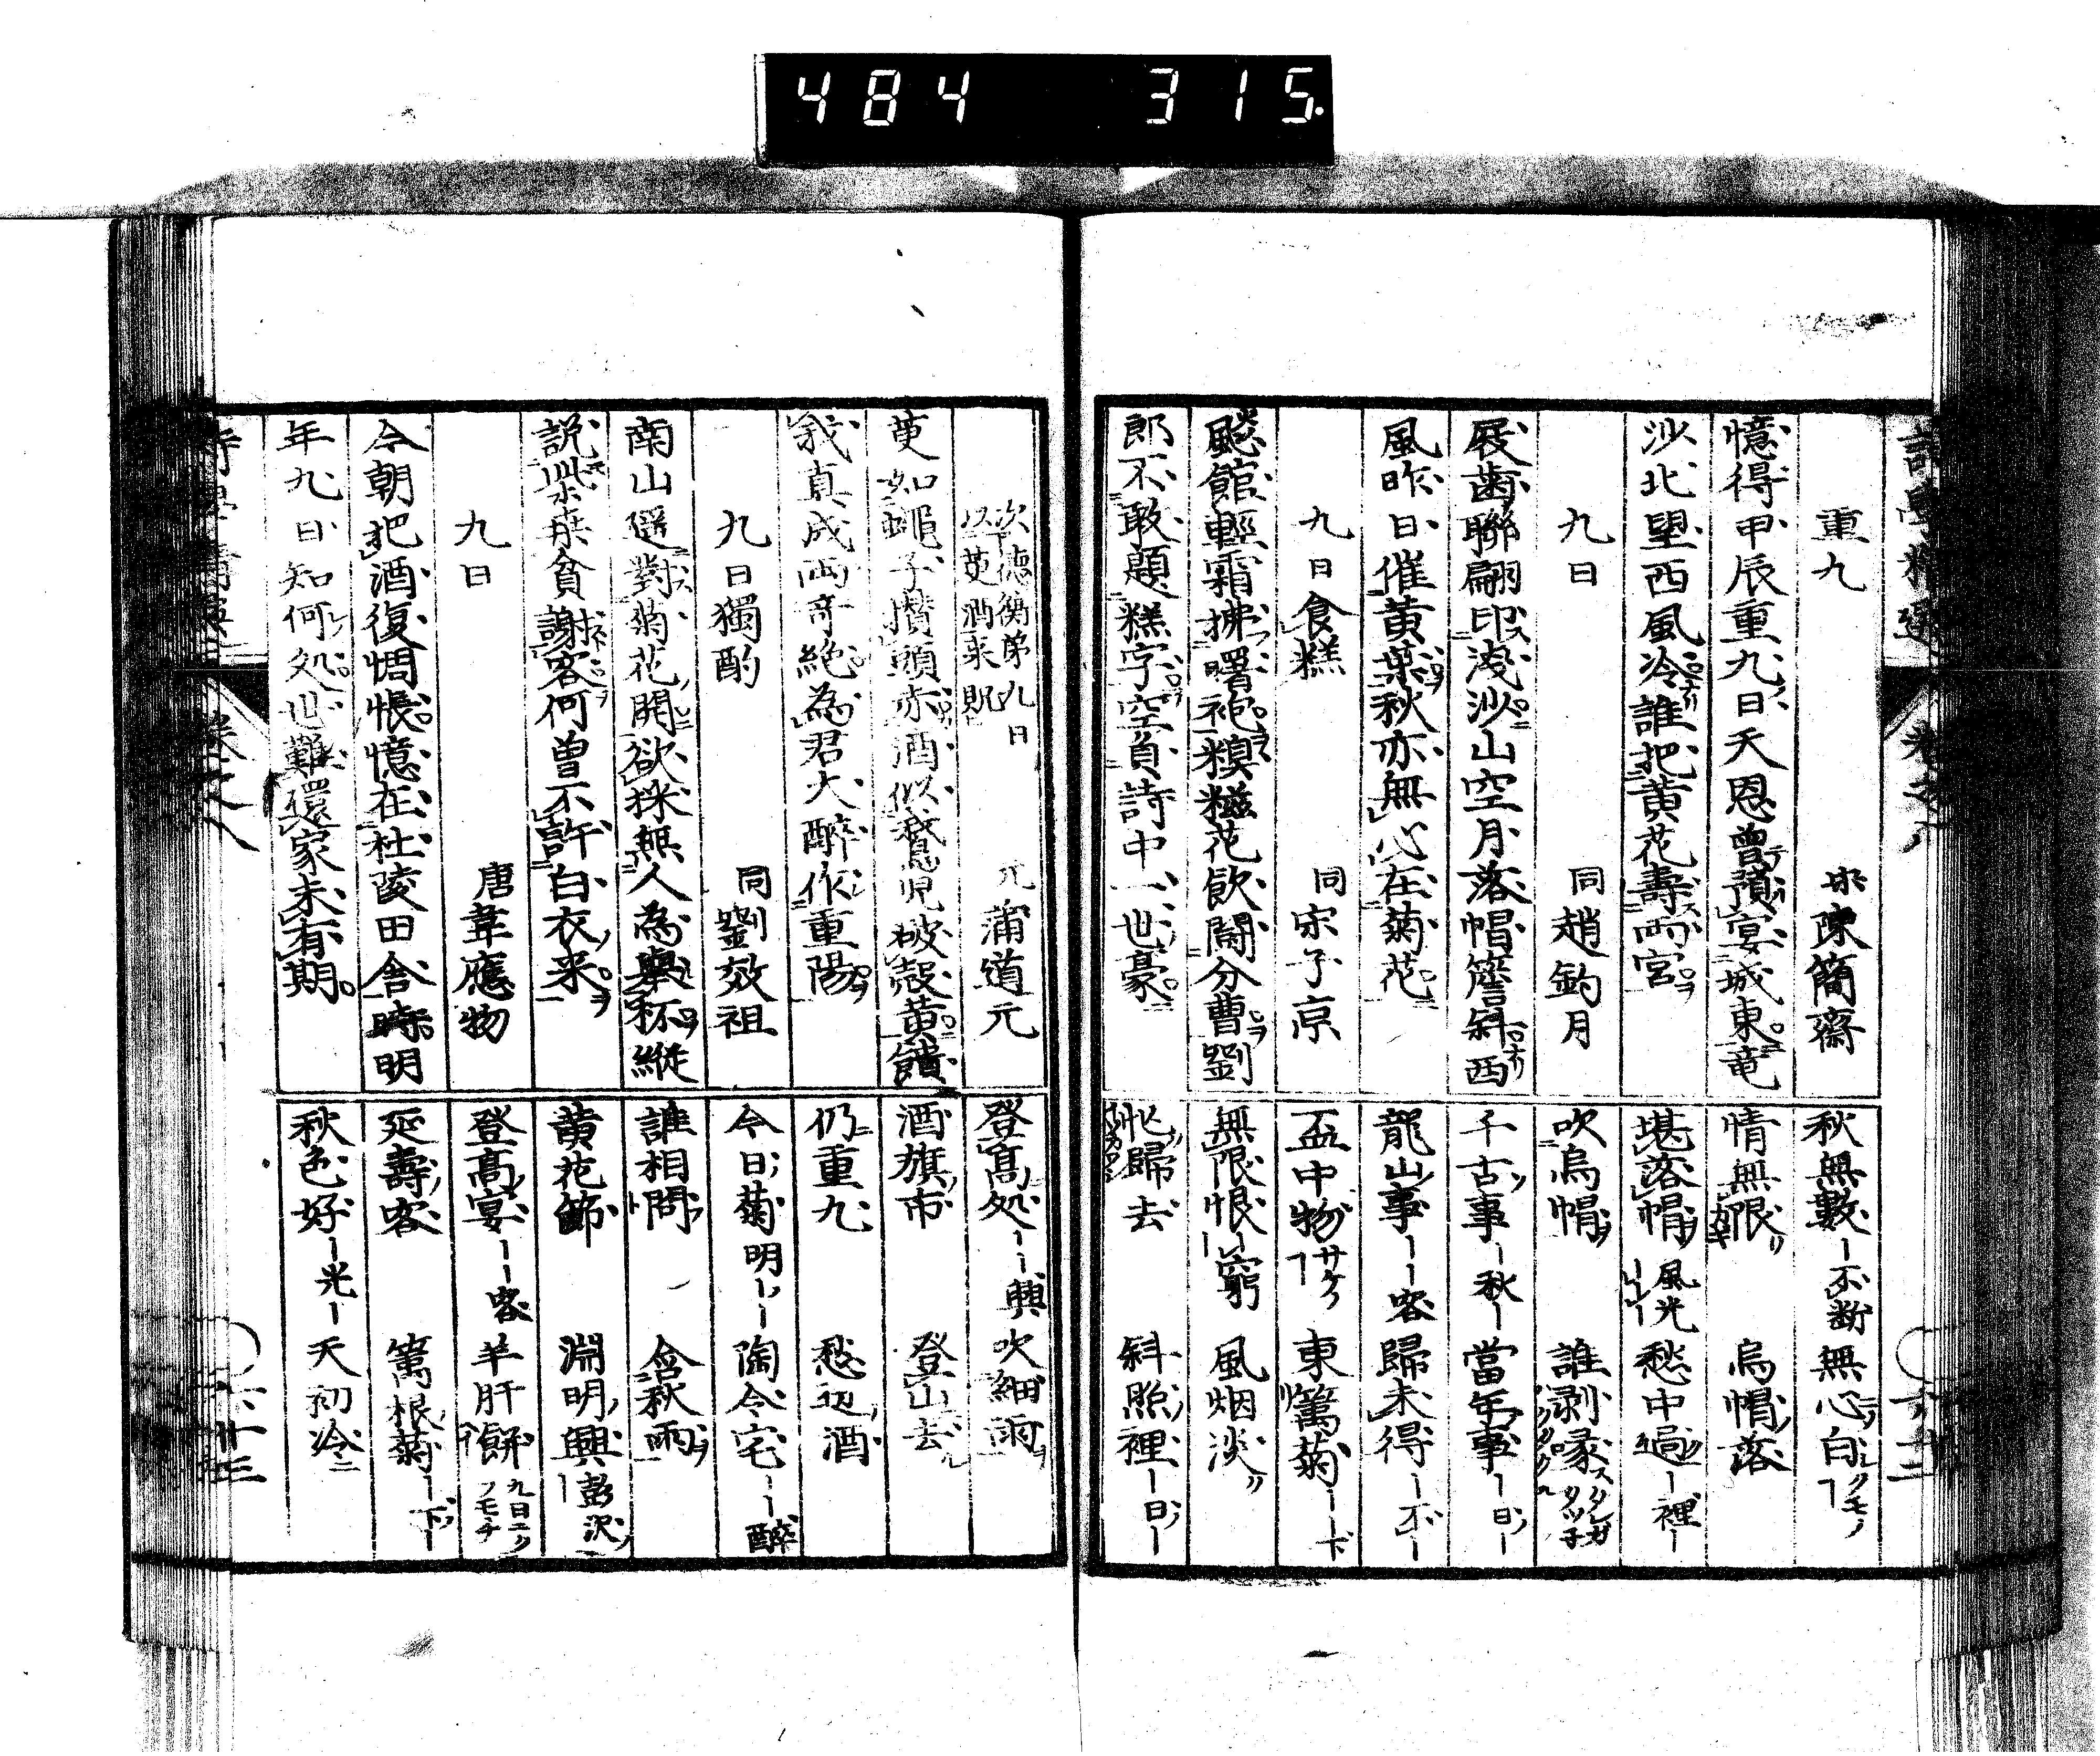 484 315.
重九 陳簡齋
憶得甲辰重九日天恩曽預宴城東竜
沙北望西風冷誰把黄花壽両宮
九日 同趙釣月
屐歯聯翩印浅沙山空月落帽簷斜西
風昨日催黄葉秋亦無心在菊花
九日食糕 同宋子京
飈館輕霜拂曙袍糗糍花飲闘分曹劉
郎不敢題糕字空負詩中一世豪
秋無數ー不断 無心白
情無限 烏帽落
堪落帽 風光 愁中過ー裡ー
吹烏帽 誰剥啄
千古事ー秋ー 當年事ー日ー
龍山事ーー客 歸未得ー不ー
盃中物 サケ 東籬菊ーー下
無限恨ー窮 風烟淡
忙歸去 斜照裡ー日ー
次徳衡弟九日
以茰酒来貺 元蒲道元
茰如蠅子攅頭赤酒似鵞児破殻黄饋
我真成両奇絶為君大醉作重陽
九日獨酌 同劉效祖
南山遥對菊花開欲採無人為擧杯縦
説柴桒貧謝客何曽不許白衣来
九日 唐韋應物
今朝把酒復惆悵憶在杜陵田舎時明
年九日知何処世難還家未有期
登高処ーー興 吹細雨
酒旗市 登山去
仍重九 愁辺酒
今日菊 明ーー 陶令宅ーー醉
誰相問 含秋雨
黄花節 淵明興 彭沢
登高宴ーー客 羊肝餅 九日ニクフモチ
延壽客 籬根菊ー下ー
秋色好ー光ー 天初冷